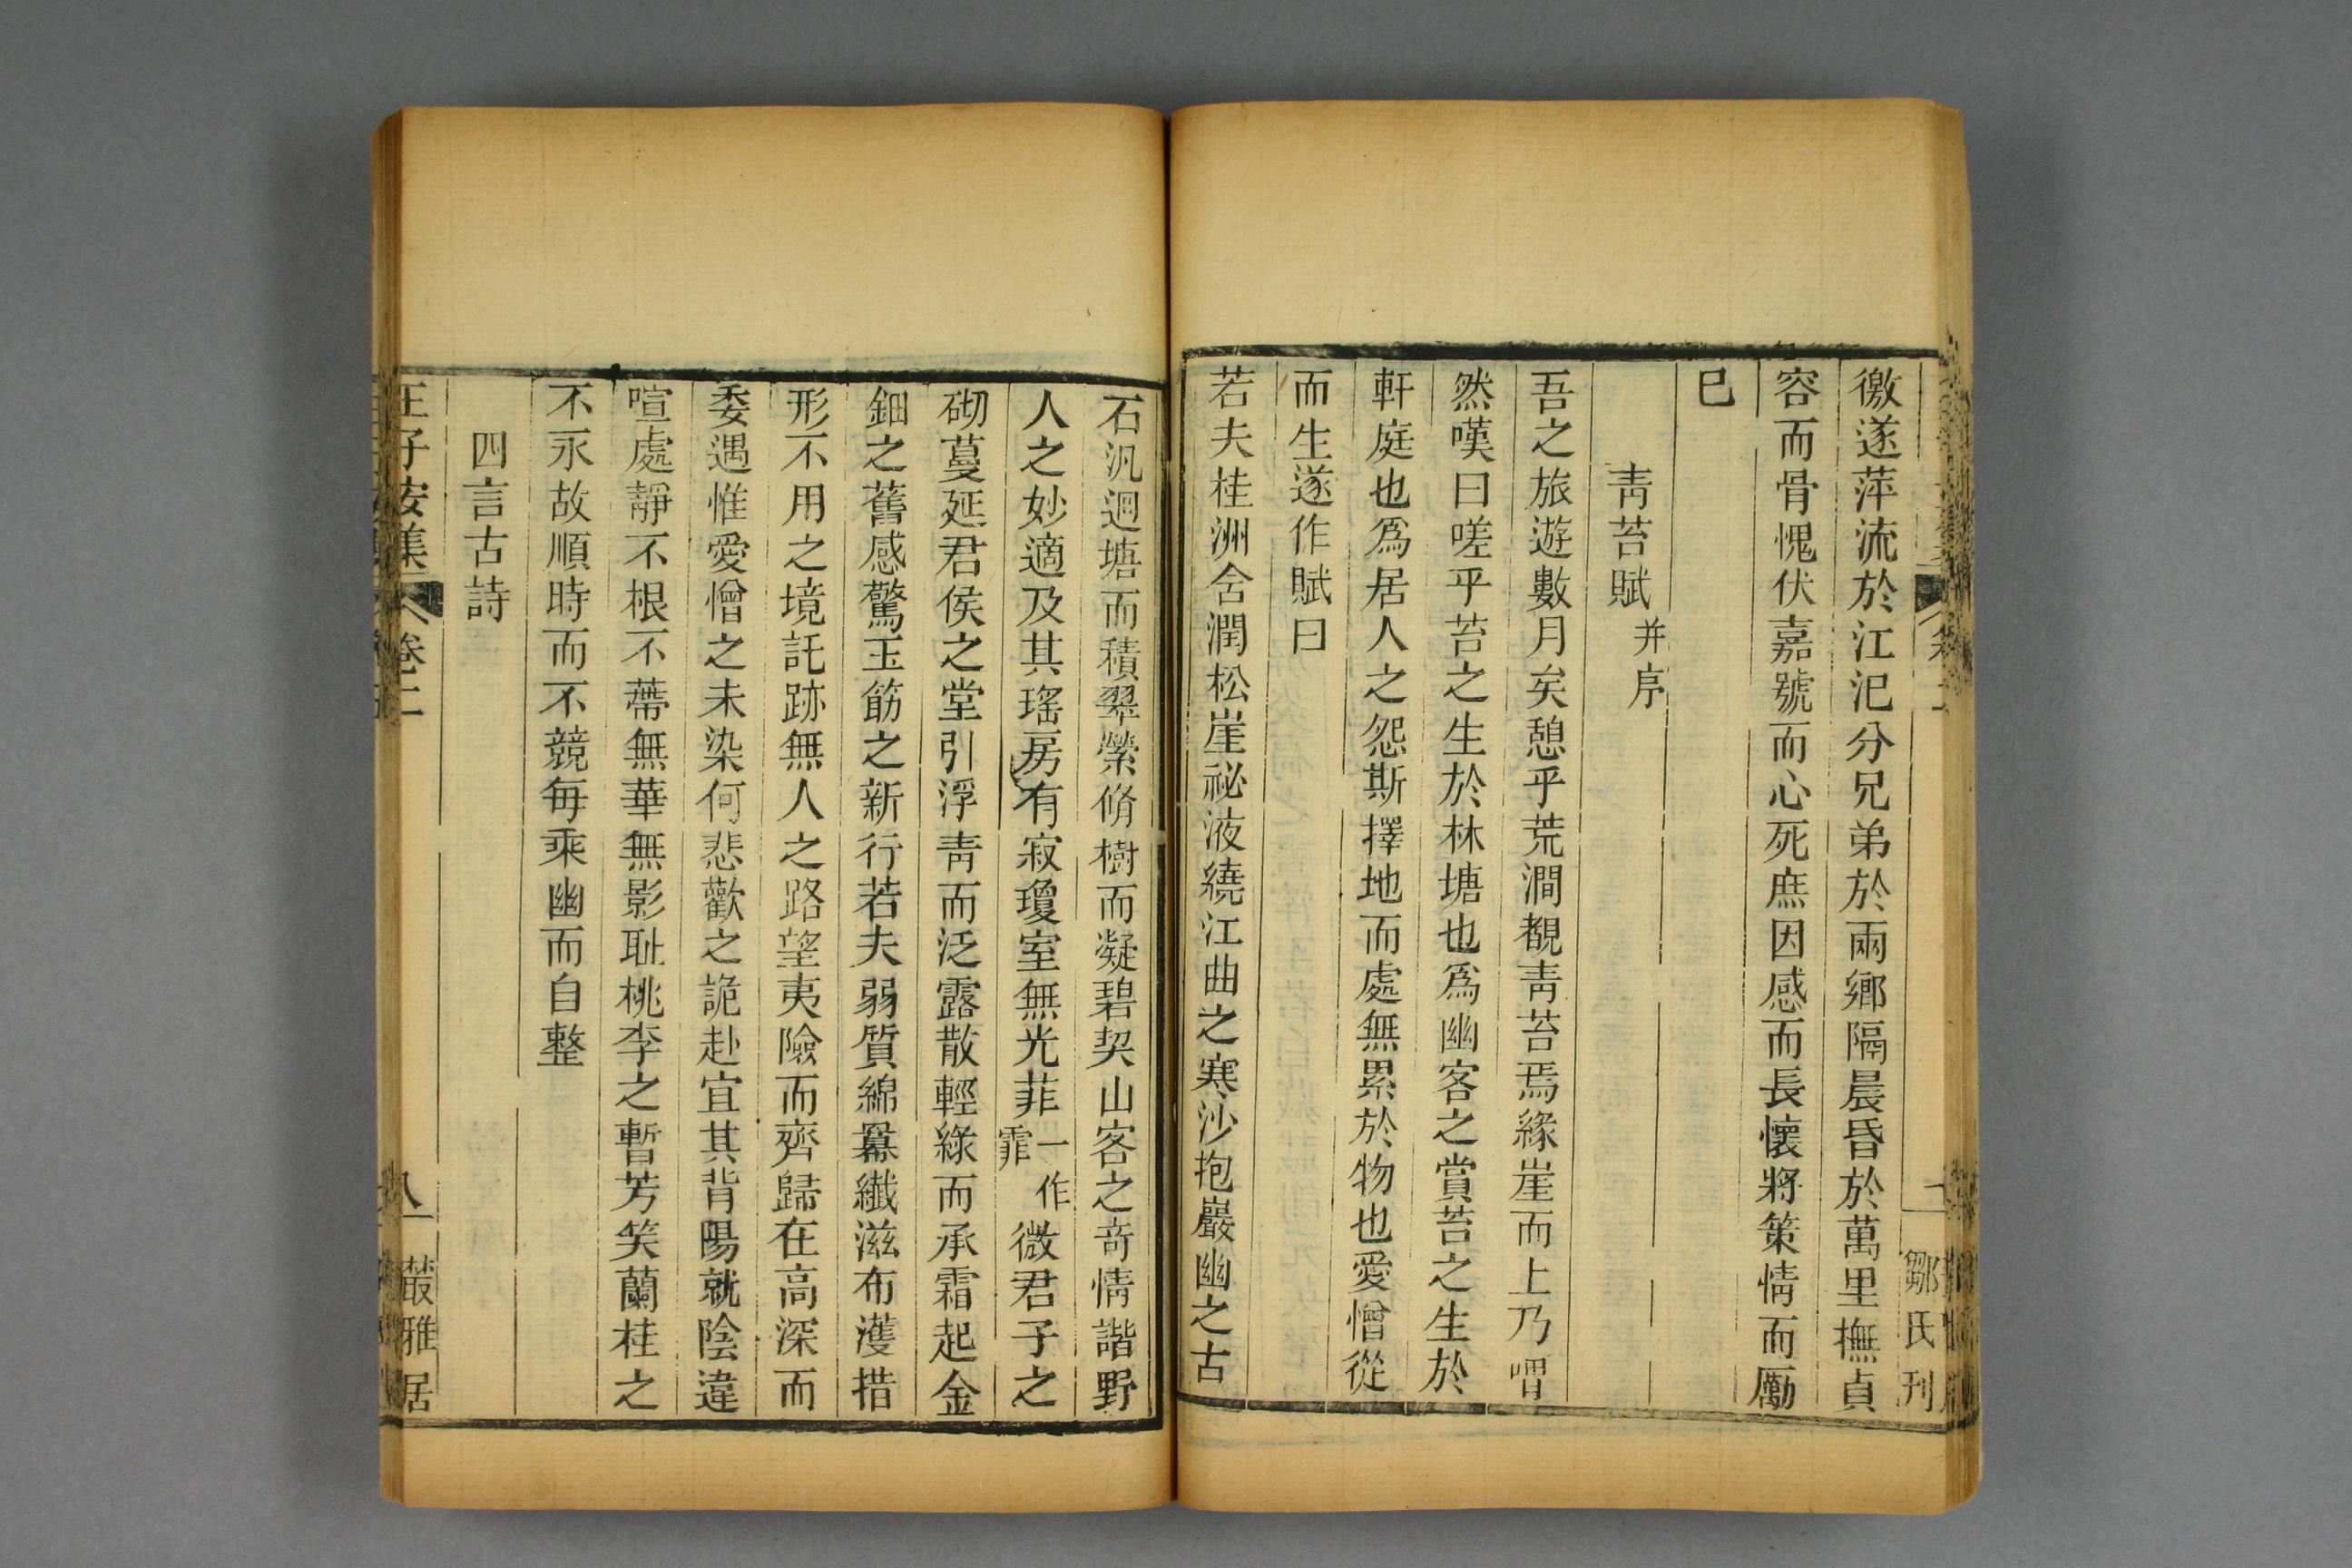 徼遂萍流於江汜分兄弟於兩鄉隔晨昏於萬里撫貞
容而骨愧伏嘉號而心死庶因感而長懷將策情而勵
已
青苔賦并序
吾之旅遊數月矣憩乎荒澗覩青苔焉緣崖而上乃喟
然嘆曰嗟乎苔之生於林塘也爲幽客之賞苔之生於
軒庭也爲居人之怨斯擇地而處無累於物也愛憎從
而生遂作賦曰
若夫桂洲含潤松崖祕液繞江曲之寒沙抱巖幽之古
鄒氏刊
石汎迴塘而積翠縈脩樹而凝碧契山客之奇情諧野
人之妙適及其瑤房有寂瓊室無光菲一作霏微君子之
砌蔓延君侯之堂引浮青而泛露散輕綠而承霜起金
鈿之舊感驚玉筯之新行若夫弱質綿羃纖滋布濩措
形不用之境託跡無人之路望夷險而齊歸在高深而
委遇惟愛憎之未染何悲歡之詭赴宜其背陽就陰違
喧處靜不根不蔕無華無影耻桃李之暫芳笑蘭桂之
不永故順時而不競每乘幽而自整
四言古詩
王子安集 卷二 八 叢雅居